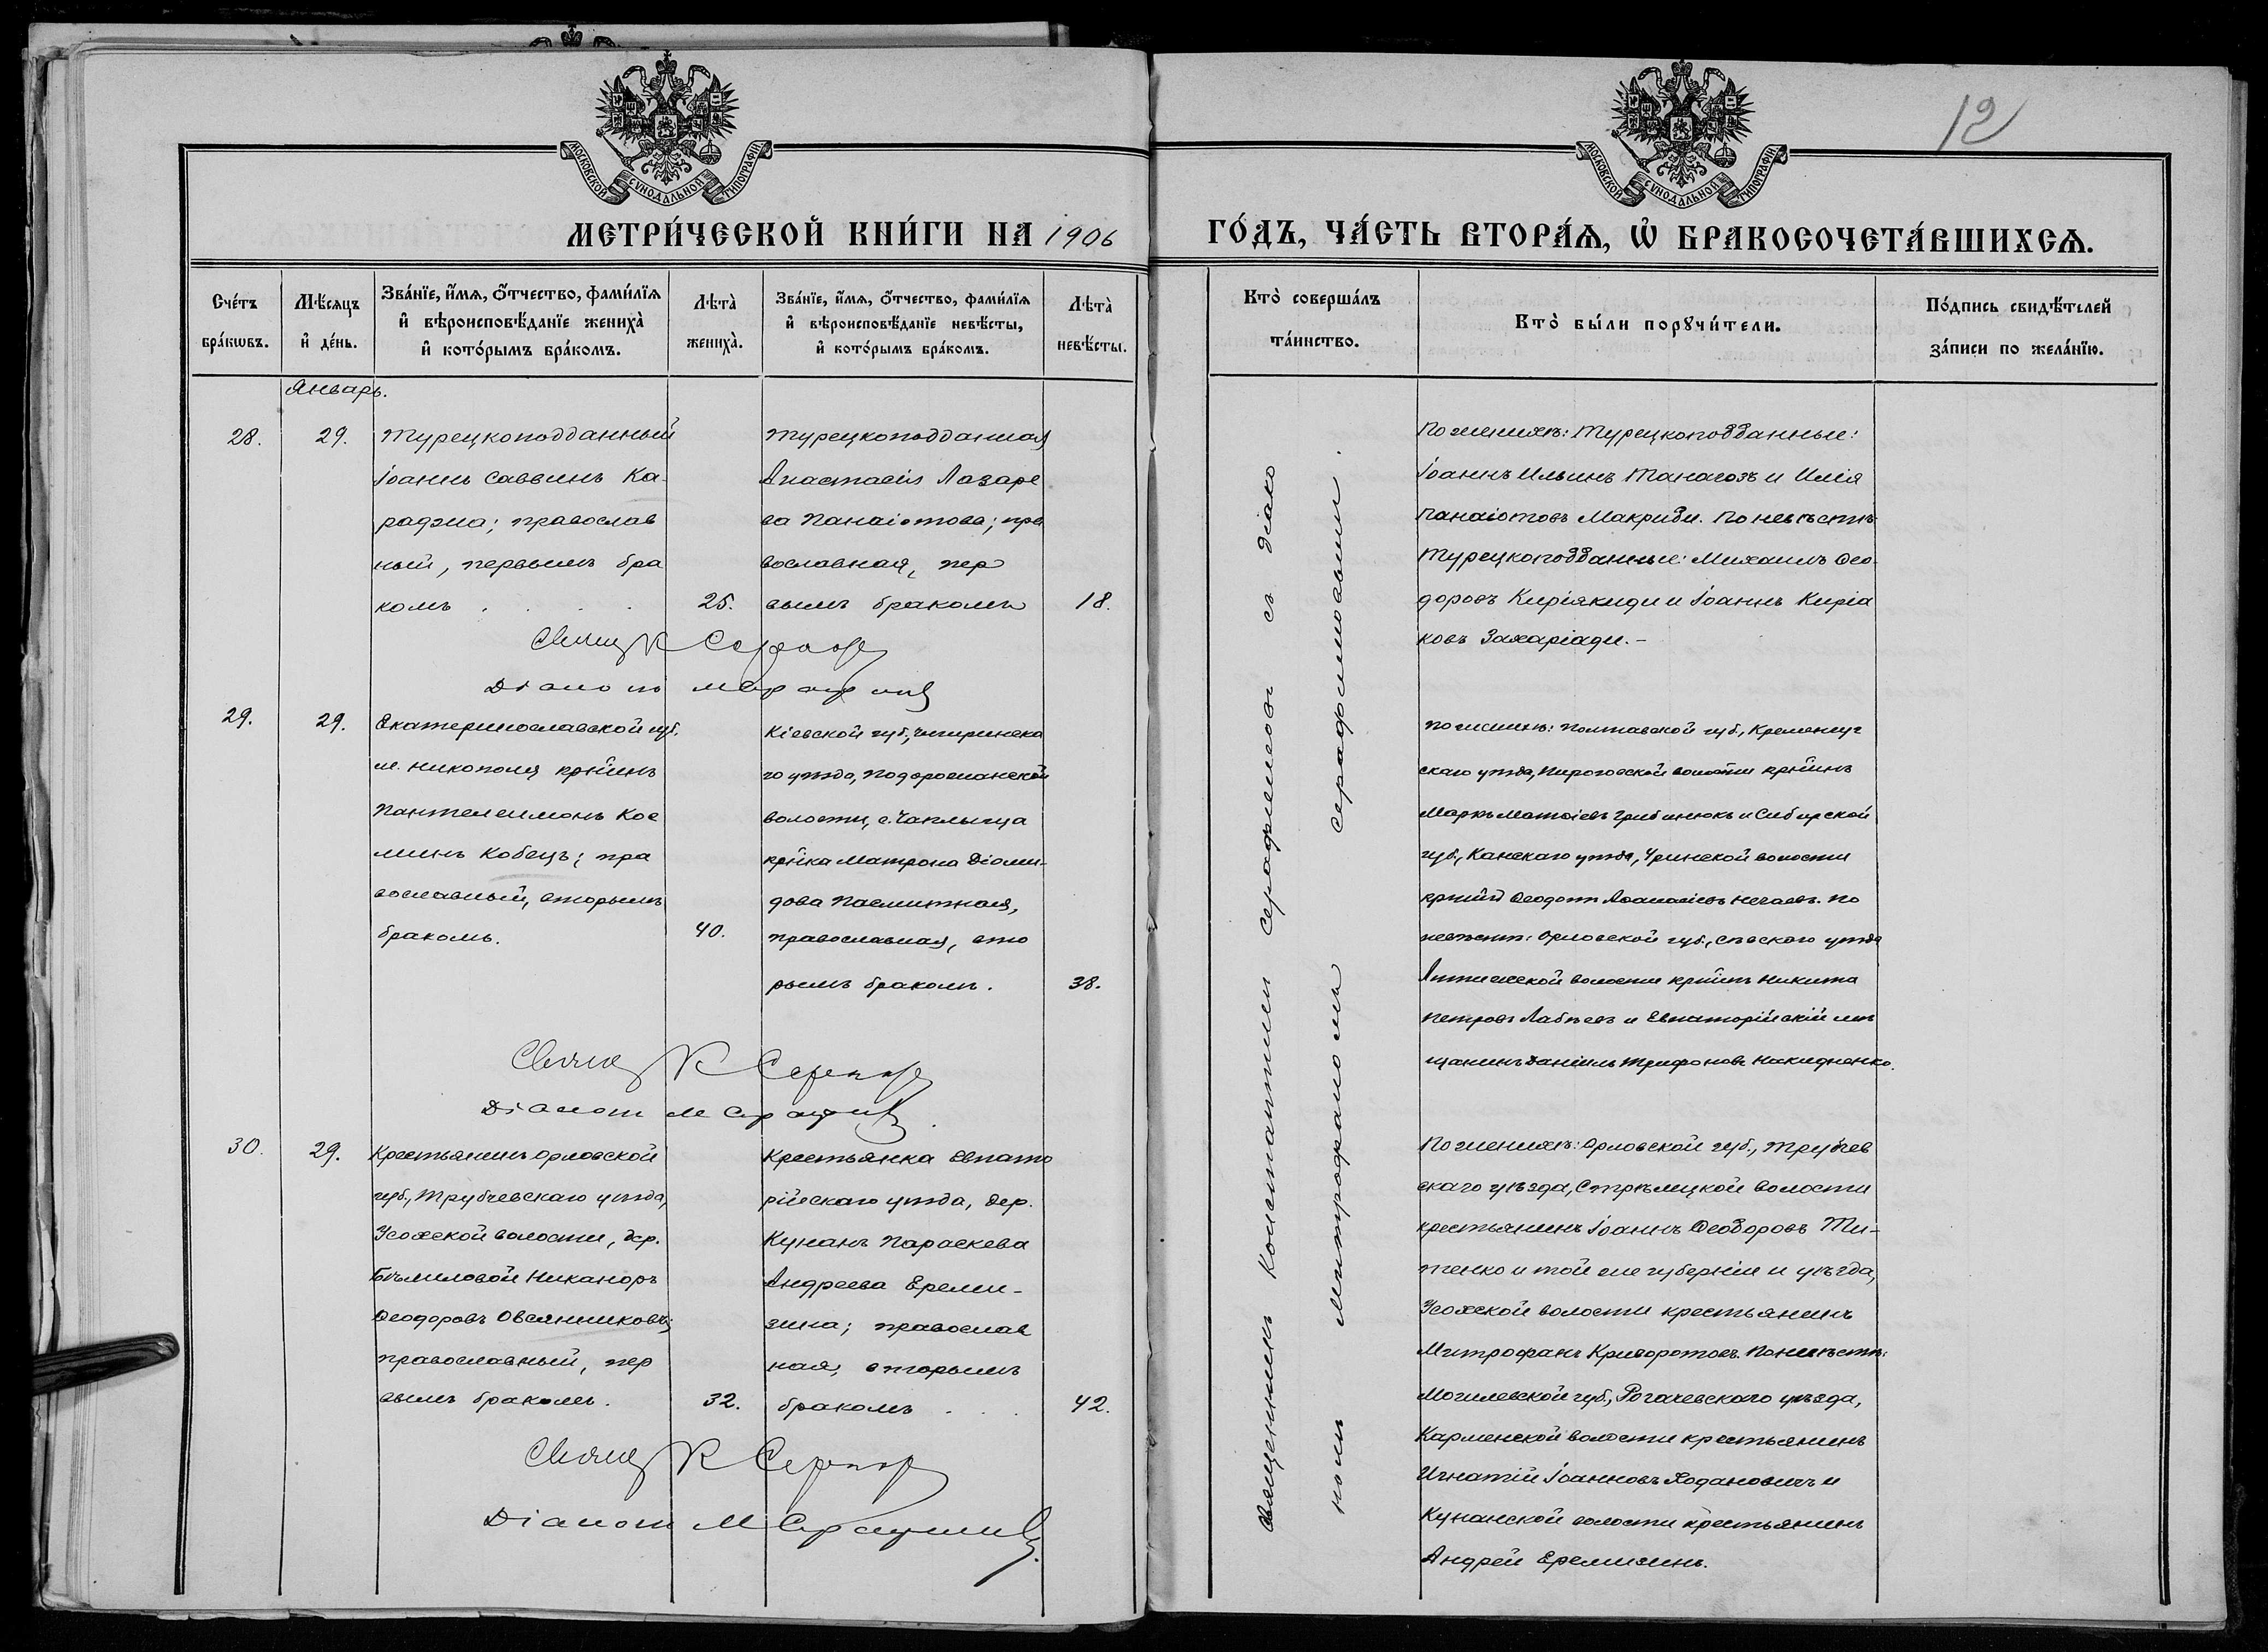 12
МОСКОВСКОЙ СѴНОДАЛЬНОЙ ТИПОГРАФІИ
МОСКОВСКОЙ СѴНОДАЛЬНОЙ ТИПОГРАФІИ
МЕТРИ́ЧЕСКОЙ КНИ́ГИ НА 1906
ГО́ДЪ, ЧА́СТЬ ВТОРА́Ѧ, Ѽ БРАКОСОЧЕТА́ВШИХСѦ.
Сче́тъ
бра́кѡвъ.
Мѣ́сяцъ
и҆ де́нь.
Зва́нїе, и҆́мѧ, ѻ҆́тчество, фами́лїѧ
и҆ вѣроисповѣ́данїе жениха̀
и҆ кото́рымъ бра́комъ.
Лѣта̀
жениха̀.
Зва́нїе, и҆́мѧ, ѻ҆́тчество, фами́лїѧ
и҆ вѣроисповѣ́данїе невѣ́сты,
и҆ кото́рымъ бра́комъ.
Лѣта̀
невѣ́сты.
Кто̀ соверша́лъ
та́инство.
Кто̀ бы́ли порꙋчи́тели.
По́дпись свидѣ́телей
за́писи по жела́нїю.
Январь.
28.
29.
Турецкоподданный
Іоаннъ Саввинъ Ка-
раджа; православ
ный, первымъ бра
комъ
25.
Турецкоподданная
Анастасія Лазаре
ва Панаіотова; пра
вославная, пер
вымъ бракомъ
18.
Священникъ Константинъ Серафимовъ съ діако
номъ Митрофаномъ
По женихѣ: Турецкоподданные:
Іоаннъ Ильинъ Танагозъ и Илія
Панаіотовъ Макриди. По невѣстѣ
Турецкоподданные: Михаилъ Ѳео-
доровъ Киріякиди и Іоаннъ Киріа
ковъ Захаріади.-
Свящ К
Діаконъ М
29.
29.
Екатеринославской губ.
м. Никополя кр-нинъ
Пантелеимонъ Кос
минъ Кобецъ; пра
вославный, вторымъ
бракомъ.
40.
Кіевской губ., Чигиринска
го уѣзда, Подорожанской
волости, с. Чаплыща
кр-нка Матрона Діоми-
дова
православная, вто
рымъ бракомъ.
38.
По женихѣ: Полтавской губ., Кременчуг
скаго уѣзда, Пироговской волости кр-нинъ
Маркъ Матѳіевъ и Сибирской
губ., Канскаго уѣзда, волости
кр-нинъ Ѳеодотъ Аѳанасіевъ Нечаевъ. По
невѣстѣ: Орловской губ., Сѣвскаго уѣзда
волости кр-нинъ Никита
Петровъ Лабѣевъ и Евпаторійскій мѣ
щанинъ Даніилъ Трифоновъ
Свящ К
Діаконъ М
30.
29.
Крестьянинъ Орловской
губ., Трубчевскаго уѣзда,
Усожской волости, дер.
Бѣлиловой Никаноръ
Ѳеодоровъ Овсянниковъ;
православный, пер
вымъ бракомъ.
32.
Крестьянка Евпато
рійскаго уѣзда, дер.
Кунанъ Параскева
Андреева Ереми-
зина; православ
ная, вторымъ
бракомъ
42.
По женихѣ: Орловской губ., Трубчев
скаго уѣзда, Стрѣлецкой волости
крестьянинъ Іоаннъ Ѳеодоровъ Ти-
тенко и той же губерніи и уѣзда,
Усожской волости крестьянинъ
Митрофанъ Криворотовъ. По невѣстѣ:
Могилевской губ., Рогачевскаго уѣзда,
Карпенской волости крестьянинъ
Игнатій Іоанновъ Ходановичъ и
Кунанской волости крестьянинъ
Андрей Еремизинъ.
Свящ К
Діаконъ М